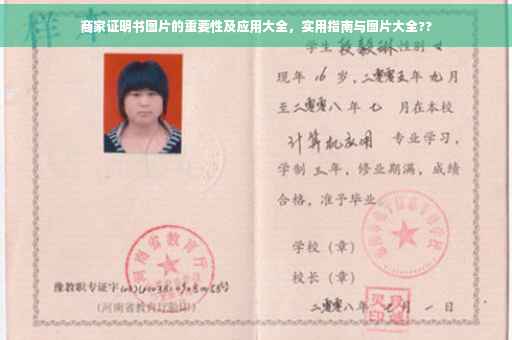 商家证明书图片的重要性及应用大全，实用指南与图片大全??
样本
学生 段毅琳 性别 女
现年 16 岁，二零零五年 九 月
至二零零八年 七 月在本校
计算机应用 专业学习，
学制 三 年，修业期满，成绩
合格，准予毕业
学校（章）
校长（章）
二零零八年 七 月 一 日
河南省教育厅
豫教职专证字
(河南省教育厅验印)